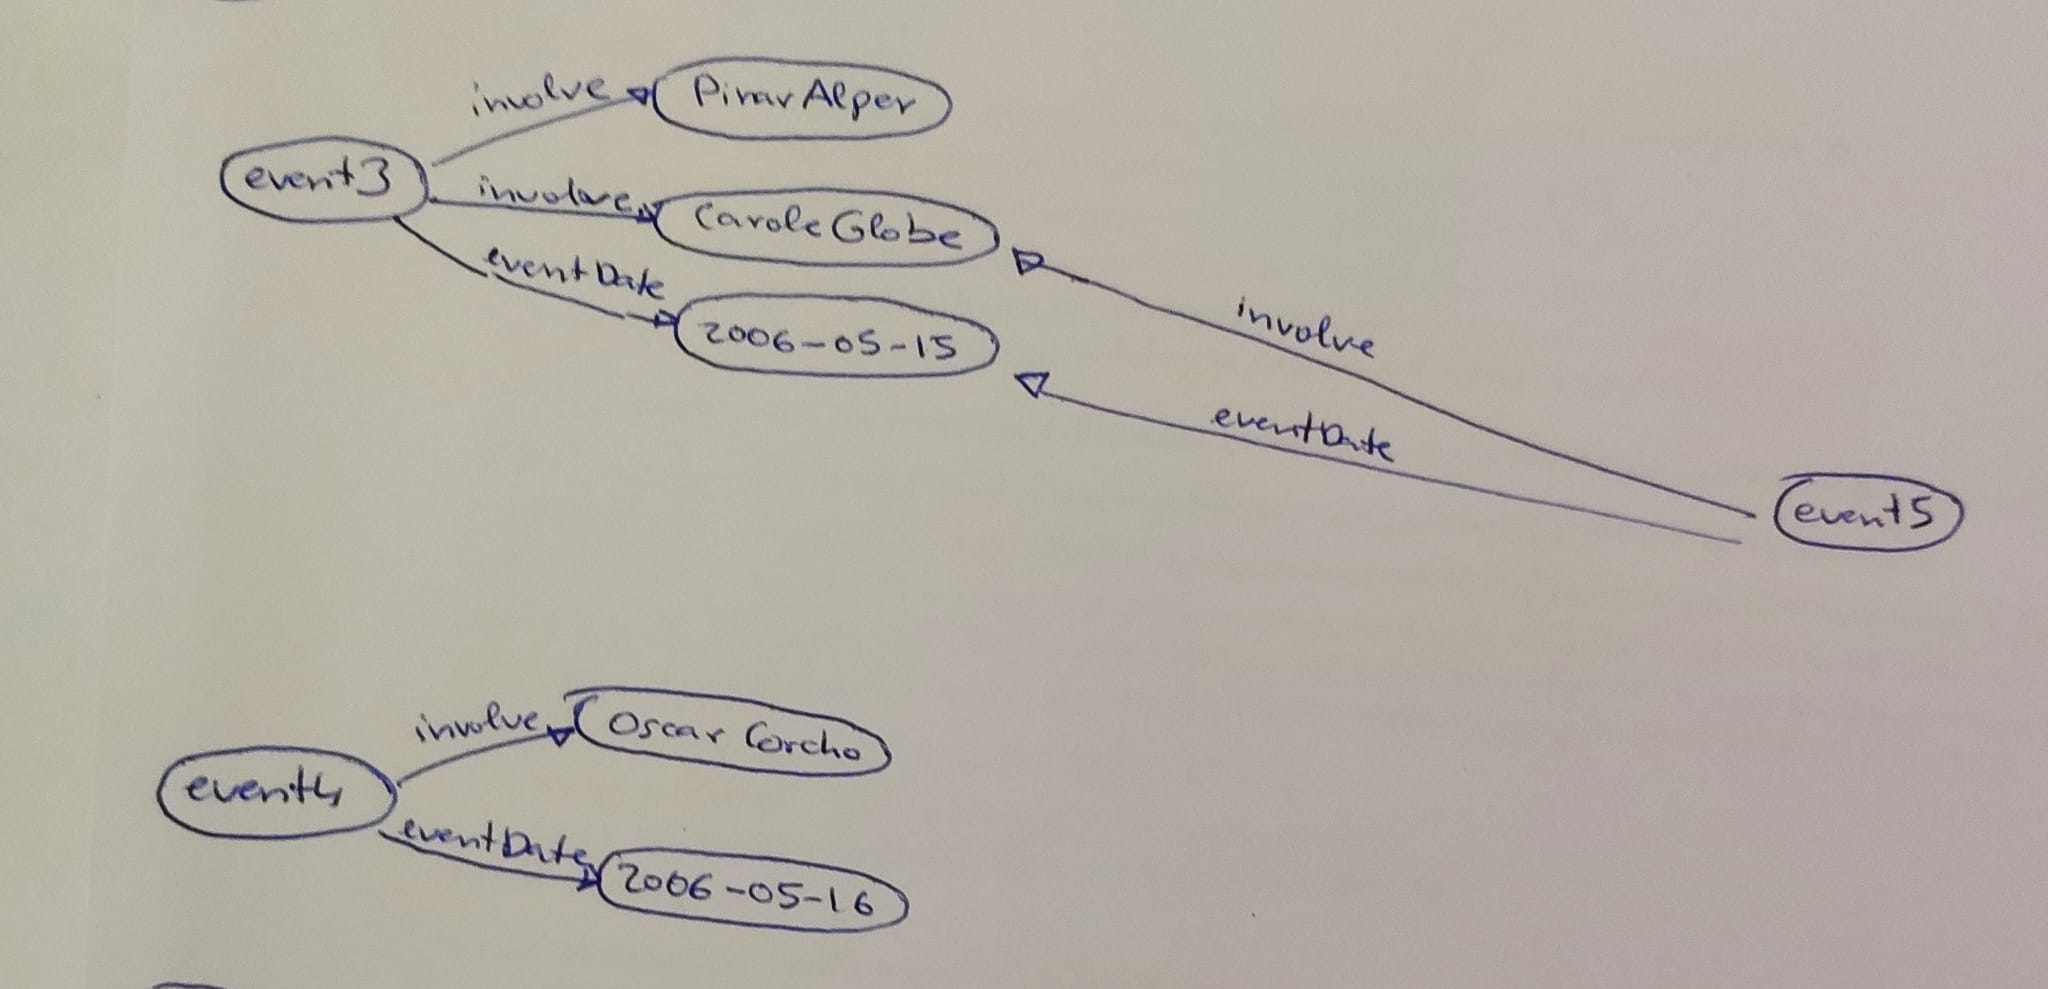 involve
PinarAlper
event3
involve
CaroleGlobe
eventDate
2006-05-15
involve
eventDate
event5
involve
Oscar Corcho
event4
eventDate
2006-05-16